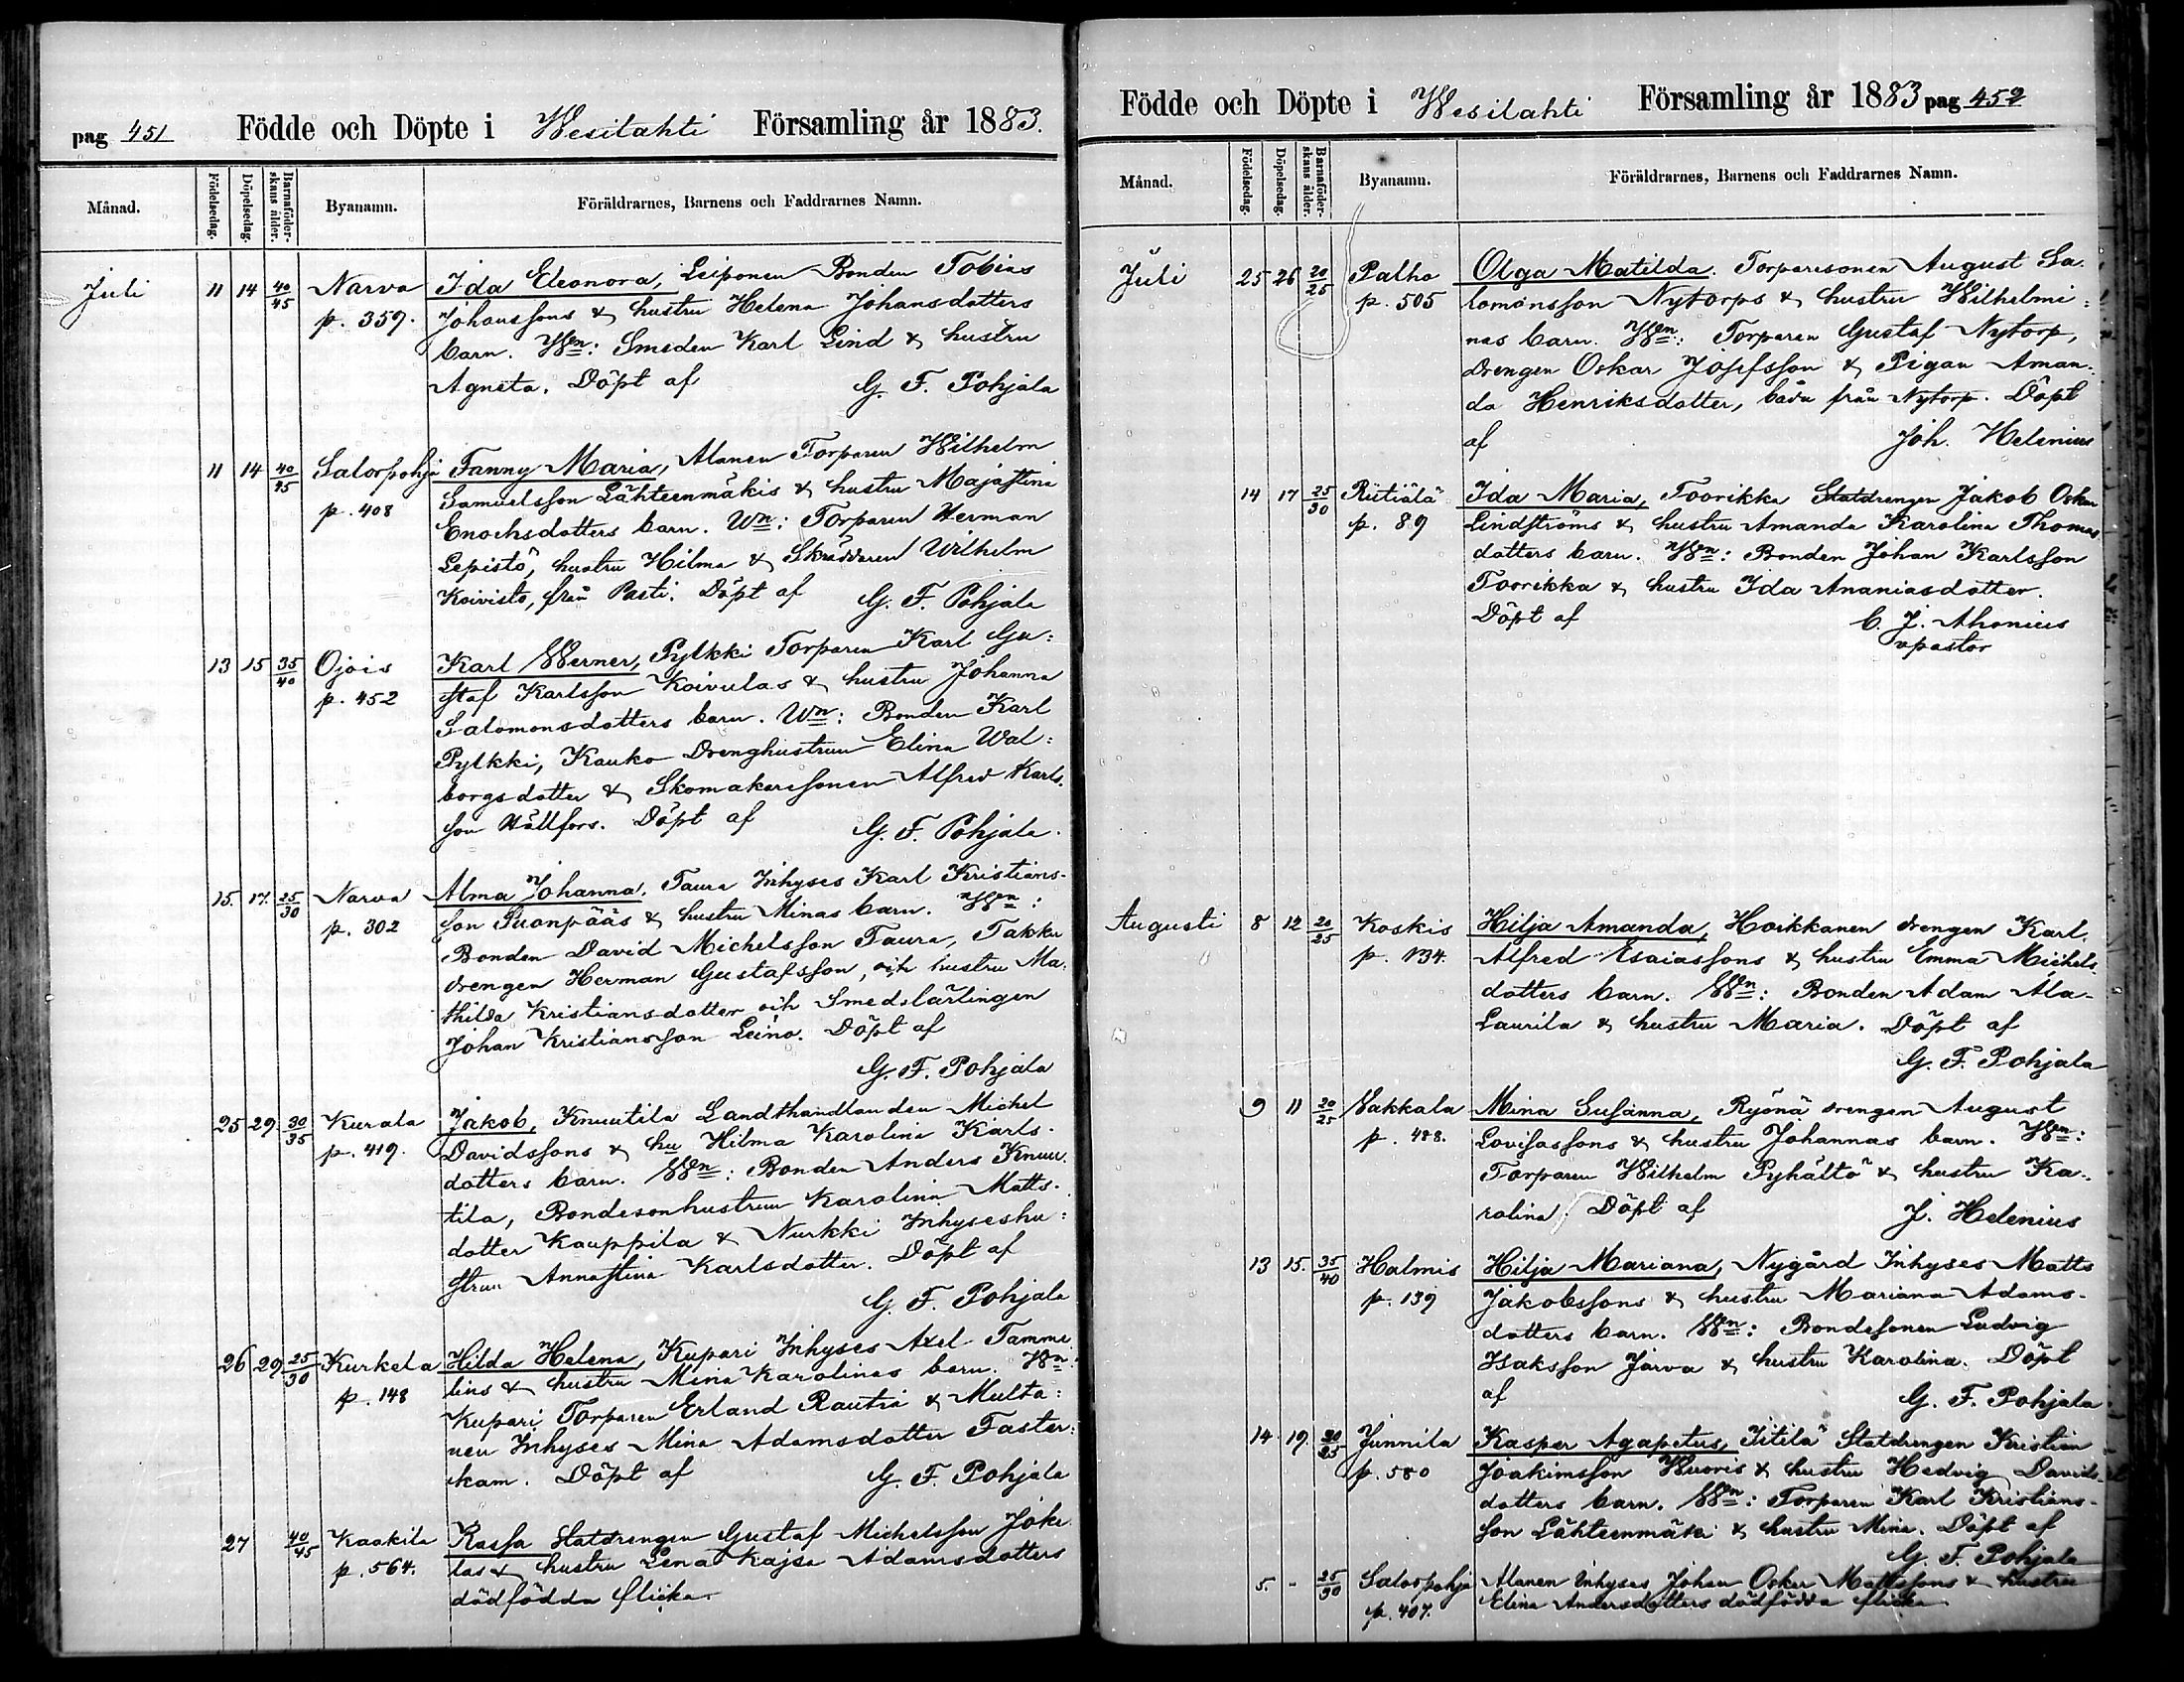 pag 451 Födde och Döpte i Wesilahti Församling år 1883.
Månad. Födelsedag. Döpelsedag. Barnaföderskans ålder. Byanamn. Föräldrarnes, Barnens och Faddrarnes Namn.
Juli 11 14 40/45 Narva Ida Eleonora, Leiponen Bonden Tobias
p. 359. Johanssons & hustru Helena Johansdotters
barn. Wn: Smeden Karl Lind & hustru
Agneta. Döpt af G. F. Pohjala
11 14 40/45 Salospohja Fanny Maria, Alanen Torparen Wilhelm
Samuelsson Lähteenmäkis & hustru Majastina
p. 408 Enochsdotters barn. Wn: Torparen Herman
Lepistö, hustru Hilma & Skräddaren Wilhelm
Koivisto, från Pasti. Döpt af G. F. Pohjala
13 15 35/40 Ojois Karl Werner, Pylkki Torparen Karl Gu:
p. 452 staf Karlsson Koivulas & hustru Johanna
Salomonsdotters barn. Wn: Bonden Karl
Pylkki, Kauko Drenghustrun Elina Wal:
borgsdotter & Skomakaresonen Alfred Karls.
son Hällfors. Döpt af G. F. Pohjala.
15. 17. 25/30 Narva Alma Johanna. Taura Inhyses Karl Kristians-
p. 302 son Suonpääs & hustru Minas barn. Wn:
Bonden David Michelsson Taura, Takku
drengen Herman Gustafsson, och hustru Ma:
thilda Kristiansdotter och Smedslärlingen
Johan Kristiansson Leino. Döpt af
G. F. Pohjala
25 29. 30/35 Kurala Jakob, Knuutila Landthandlanden Michel
p. 419. Davidssons & hu Hilma Karolina Karls-
dotters barn. Wn: Bonden Anders Knuu.
tila, Bondesonhustrun Karolina Matts-
dotter Kauppila & Nurkki Inhyseshu:
strun Annastina Karlsdotter. Döpt af
G. F. Pohjala
26 29 25/30 Kurkela Hilda Helena, Kupari Inhyses Axel Tamme
p. 148 lins & hustru Mina Karolinas barn. Wn:
Kupari Torparen Erland Rautia & Multa:
nen Inhyses Mina Adamsdotter Faster:
kam. Döpt af G. F. Pohjala
27 40/45 Kaakila Rassa Statdrengen Gustaf Michelsson Joke
p. 564. las & hustru Lena Kajsa Adamsdotters
dödfödda flicka.
Födde och Döpte i Wesilahti Församling år 1883 pag 452
Månad. Födelsedag. Döpelsedag. Barnaföderskans ålder. Byanamn. Föräldrarnes, Barnens och Faddrarnes Namn.
Juli 25 26 20/25 Palho Olga Matilda. Torparesonen August Sa.
p. 505 lomonsson Nytorps & hustru Wilhelmi:
nas barn. Wn: Torparen Gustaf Nytorp,
drengen Oskar Josefsson & Pigan Aman.
da Henriksdotter, båda från Nytorp. Döpt
af Joh. Helenius
14 17 25/30 Riitiälä Ida Maria, Toorikka Statdrengen Jakob Oskar
p. 89 Lindströms & hustru Amanda Karolina Thomas
dotters barn. Wn: Bonden Johan Karlsson
Toorikka & hustru Ida Ananiasdotter.
Döpt af C. J. Ahonius
vpastor
Augusti 8 12 20/25 Koskis Hilja Amanda, Hoikkanen drengen Karl.
p. 134. Alfred Esaiassons & hustru Emma Michels
dotters barn. Wn: Bonden Adam Ala-
Laurila & hustru Maria. Döpt af
G. F. Pohjala
9 11 20/25 Sakkala Mina Susanna, Ryönä drengen August
p. 488. Lovisassons & hustru Johannas barn. Wn:
Torparen Wilhelm Pyhältö & hustru Ka-
rolina. Döpt af J. Helenius
13 15. 35/40 Halmis Hilja Mariana, Nygård Inhyses Matts
p. 139 Jakobssons & hustru Mariana Adams-
dotters barn. Wn: Bondesonen Ludvig
Isaksson Järva & hustru Karolina. Döpt
af G. F. Pohjala
14 19. 20/25 Junnila Kasper Agapetus, Iitilä Statdrengen Kristian
p. 580 Joakimsson Wuoris & hustru Hedvig Davids-
dotters barn. Wn: Torparen Karl Kristians-
son Lähteenmäki & hustru Mina. Döpt af
G. F. Pohjala
5. - 25/30 Salospohja Alanen Inhyses Johan Oskar Mattssons & hustru
p. 407. Elina Andersdotters dödfödda flicka